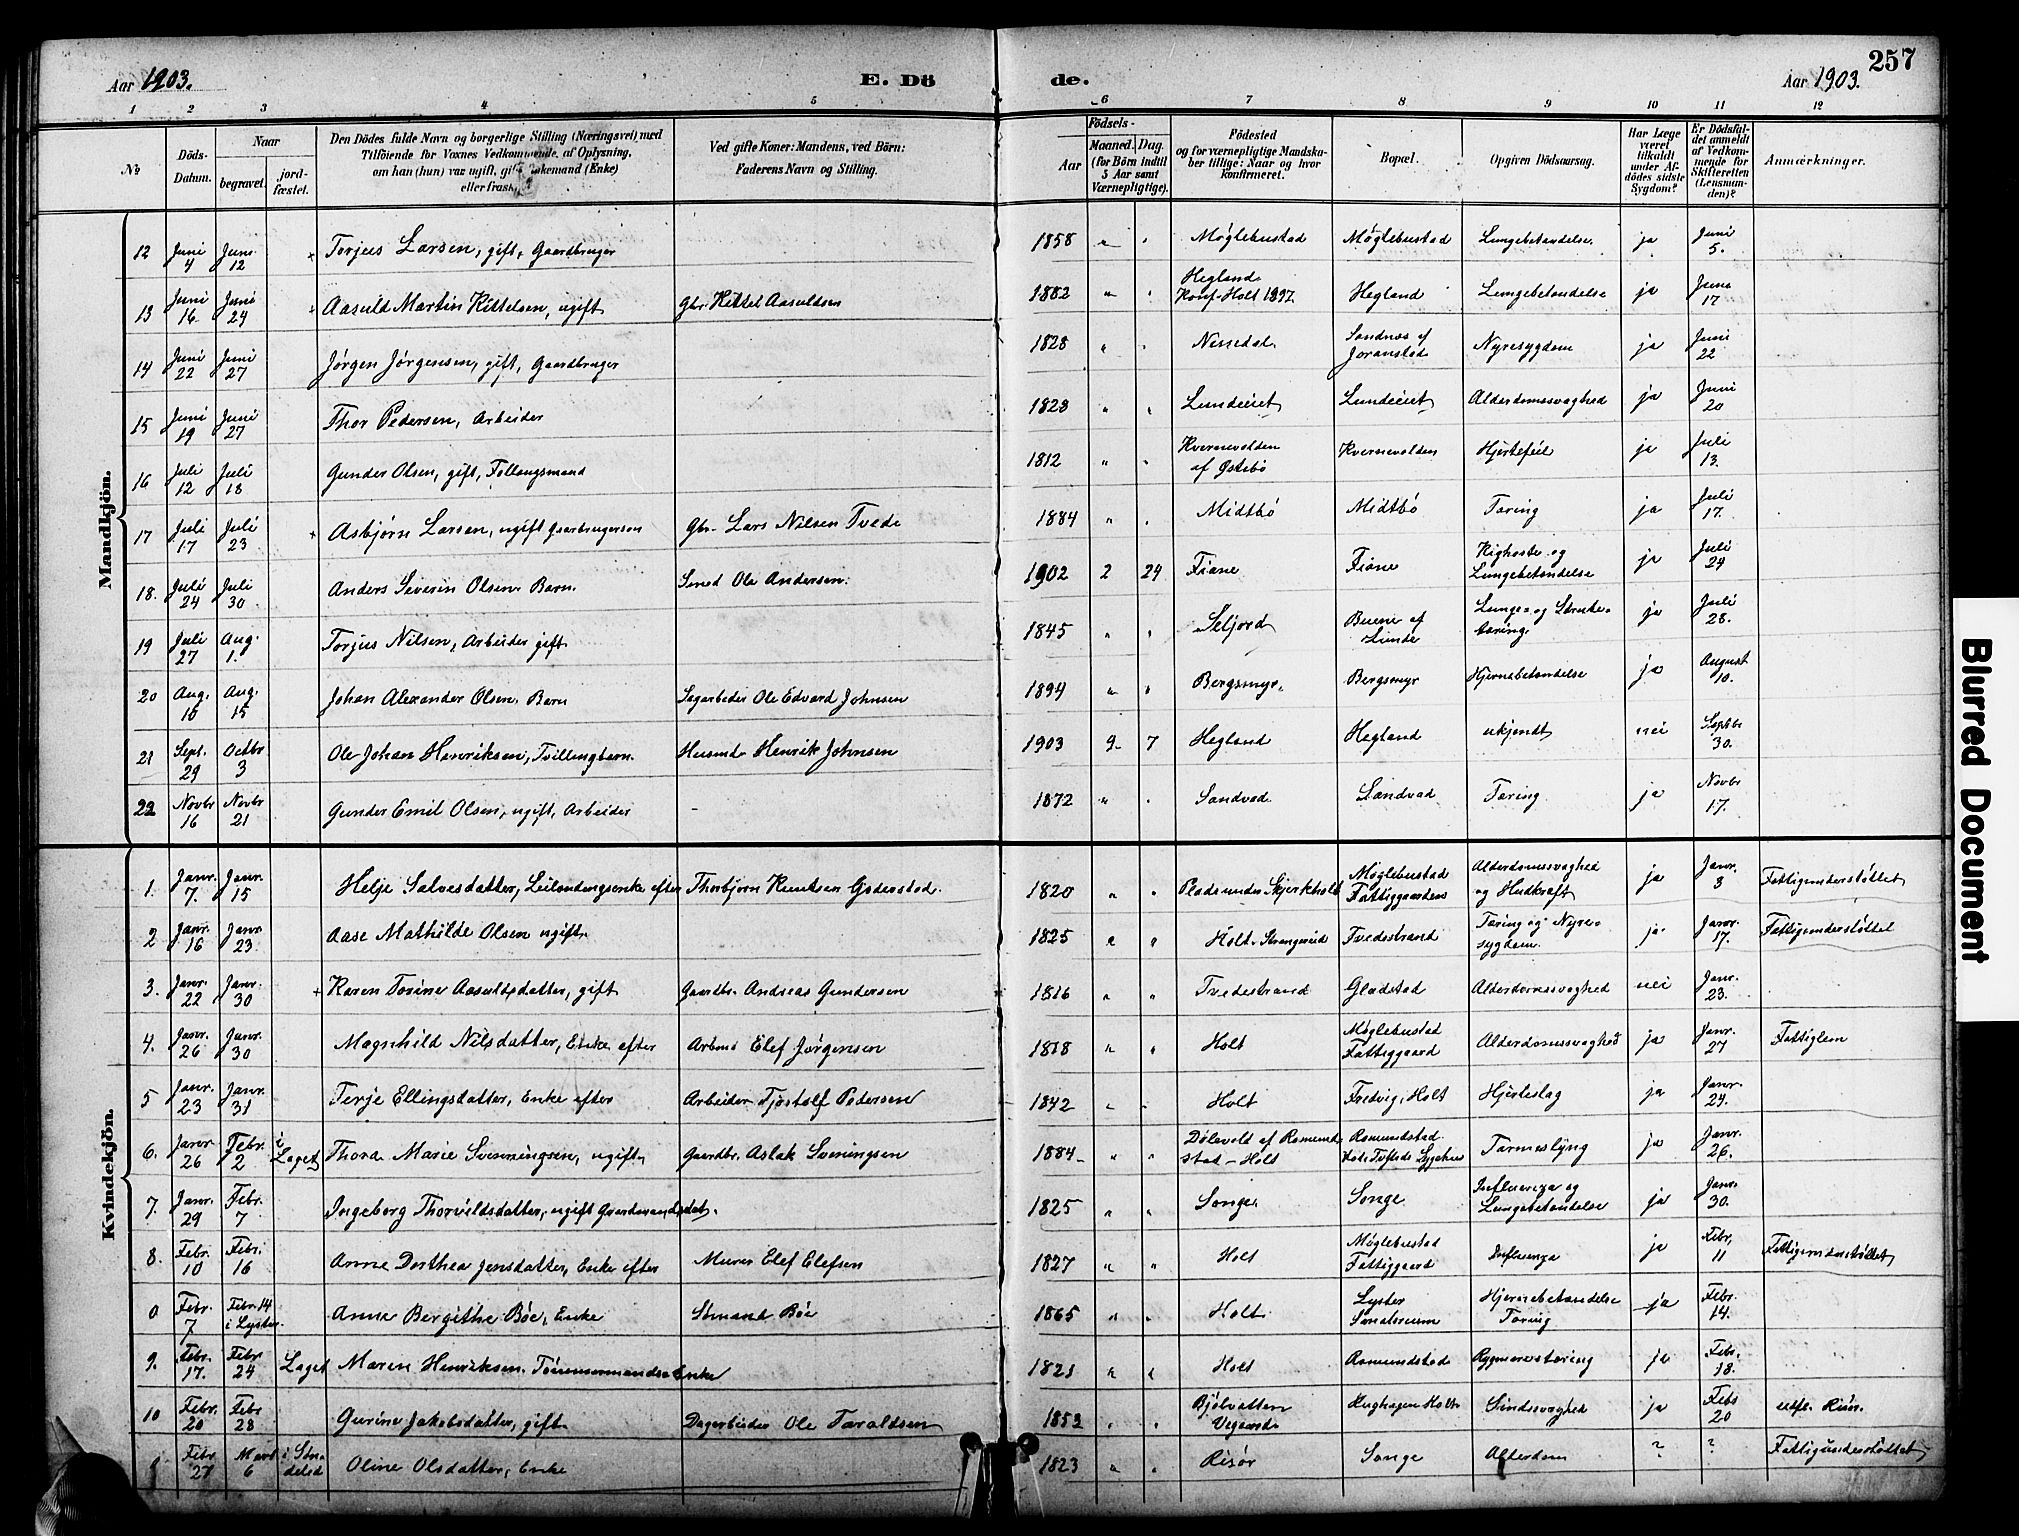 Aar 1903. E. Dö de. Aar 1903. 257
1 2 3 4 5 6 7 8 9 10 11 12
No Döds-Datum. Naar begravet. jord-fæstet. Den Dödes fulde Navn og borgerlige Stilling (Næringsvei) med Tilföiende for Voxnes Vedkommende, af Oplysning, om han (hun) var ugift, gift, Enkemand (Enke) eller frask. Ved gifte Koner: Mandens, ved Börn: Faderens Navn og Stilling. Födsels- Aar Maaned. Dag. (for Börn indtil 5 Aar samt Værnepligtige). Födested og for værnepligtige Mandskaber tillige: Naar og hvor konfirmeret. Bopæl. Opgiven Dödsaarsag. Har Læge været tilkaldt under Afdödes sidste Sygdom? Er Dödsfaldet anmeldt af Vedkommende for Skifteretten (Lensmanden)? Anmærkninger.
Mandkjön.
12 Juni 4 Juni 12 + Torjus Larsen, gift, Gaardbruger 1858 " " Møglebustad Møglebustad Lungebetændelse ja Juni 5.
13 Juni 16 Juni 24 Aasuld Martin Kittelsen, ugift Gbr. Kittel Aasuldsen 1882 " " Hegland Konf. Holt 1897 Hegland Lungebetændelse ja Juni 17
14 Juni 22 Juni 27 Jørgen Jørgensen, gift, Gaardbruger 1828 " " Nissedal Sandnes af Joranstad Nyresygdom ja Juni 22
15 Juni 19 Juni 27 Thor Pedersen, Arbeider 1828 " " Lundeeiet Lundeeiet Alderdomssvaghed ja Juni 20
16 Juli 12 Juli 18 Gunder Olsen, gift, Follaugsmand 1812 " " Kvernevolden af Østebø Kvernevolden Hjertefeil ja Juli 13.
17 Juli 17 Juli 23 + Asbjørn Larsen, ugift Gaardbrugersøn Gbr. Lars Nilsen Tvede 1884 " " Midtbø Midtbø Tæring ja Juli 17.
18. Juli 24 Juli 30 Anders Severin Olsen. Barn. Smed Ole Andersen. 1902 2 24 Fiane Fiane Kighoste og Lungebetændelse ja Juli 24
19 Juli 27 Aug. 1. Torjus Nilsen, Arbeider gift 1845 " " Seljord Buene af Lunde Lunge- og Strubetæring ja Juli 28.
20 Aug. 10 Aug. 15 Johan Alexander Olsen, Barn Sagarbeider Ole Edvard Johnsen 1894 " " Bergsmyr. Bergsmyr Hjernebetændelse ja August 10.
21 Sept. 29 Octbr 3 Ole Johan Henriksen, Tvillingbarn. Husmd. Henrik Johnsen 1903 9 7 Hegland Hegland ukjendt nei Septbr 30.
22 Novbr 16 Novbr 21 Gunder Emil Olsen, ugift, Arbeider - 1872 " " Sandvad Sandvad Tæring ja Novbr 17.
Kvindekjön.
1. Janr. 7. Janr. 15 Helje Salvesdatter, Leilændingsenke efter Thorbjørn Knutsen Gjøderstad. 1820 " " Plads under Skjerkholt Møglebustad Fattiggaarden Alderdomssvaghed og Hudkræft ja Janr. 3 Fattigunderstøttet
2 Janr. 16 Janr. 23. Aase Mathilde Olsen ugift 1825 " " Holt. Strengereid Tvedestrand Tæring og Nyresygdom ja Janr. 17. Fattigunderstøttet
3. Janr. 22 Janr. 30 + Karen Torine Aasuldsdatter, gift Gaardbr. Andreas Gundersen 1816 " " Tvedestrand Gladstad Alderdomssvaghed nei Janr. 23.
4. Janr. 26 Janr. 30 Magnhild Nilsdatter, Enke efter Arbmd Elef Jørgensen 1818 " " Holt Møglebustad Fattiggaard Alderdomssvaghed ja Janr. 27 Fattiglem
5 Janr. 23 Janr. 31 Terje Ellingsdatter, Enke efter Arbeider Tjøstolf Pedersen 1842 " " Holt Fredvig, Holt Hjerteslag ja Janr. 24.
6. Janr. 26 Febr. 2 i Laget Thora Marie Svenningsen, ugift Gaardbr. Aslak Sveningsen 1884 " " Dølevold af Ramundstad - Holt Ramundstad. Tvede Sygehus Tarmeslyng ja Janr. 26.
7. Janr. 29 Febr. 7 Ingeborg Thorvildsdatter, ugift Gaardmandsdat. 1825 " " Songe. Songe Influenza og Lungebetændelse ja Janr. 30.
8. Febr. 10 Febr. 16 Anne Dorthea Jensdatter, Enke efter Murer Elef Elefsen 1827 " " Holt Møglebustad Fattiggaard Influenza ja Febr. 11 Fattigunderstøttet
0 Febr. 7 Febr. 14 i Lyster. Anne Bergithe Bøe, Enke Sømand Bøe 1865 " " Holt Lyster Sanatorium Hjernebetændelse Tæring ja Febr. 14.
9. Febr. 17. Febr 24 Laget Maren Henriksen. Tømmermands Enke 1821 " " Holt Ramundstad Rygmarvstæring ja Febr. 18.
10 Febr. 20 Febr 28 Gurine Jakobsdatter, gift Dagarbeider Ole Taraldsen 1853 " " Bjølvatten Vegaard Holt Sindssvaghed ja Febr 20
Febr 27 Marts 6 Oline Olsdatter, Enke 1823 " " Risør Songe Alderdom ? ? Fattigunderstøttet
Blurred Document